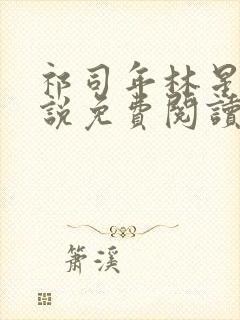 祁司年林星
說免費閱讀
簫溪